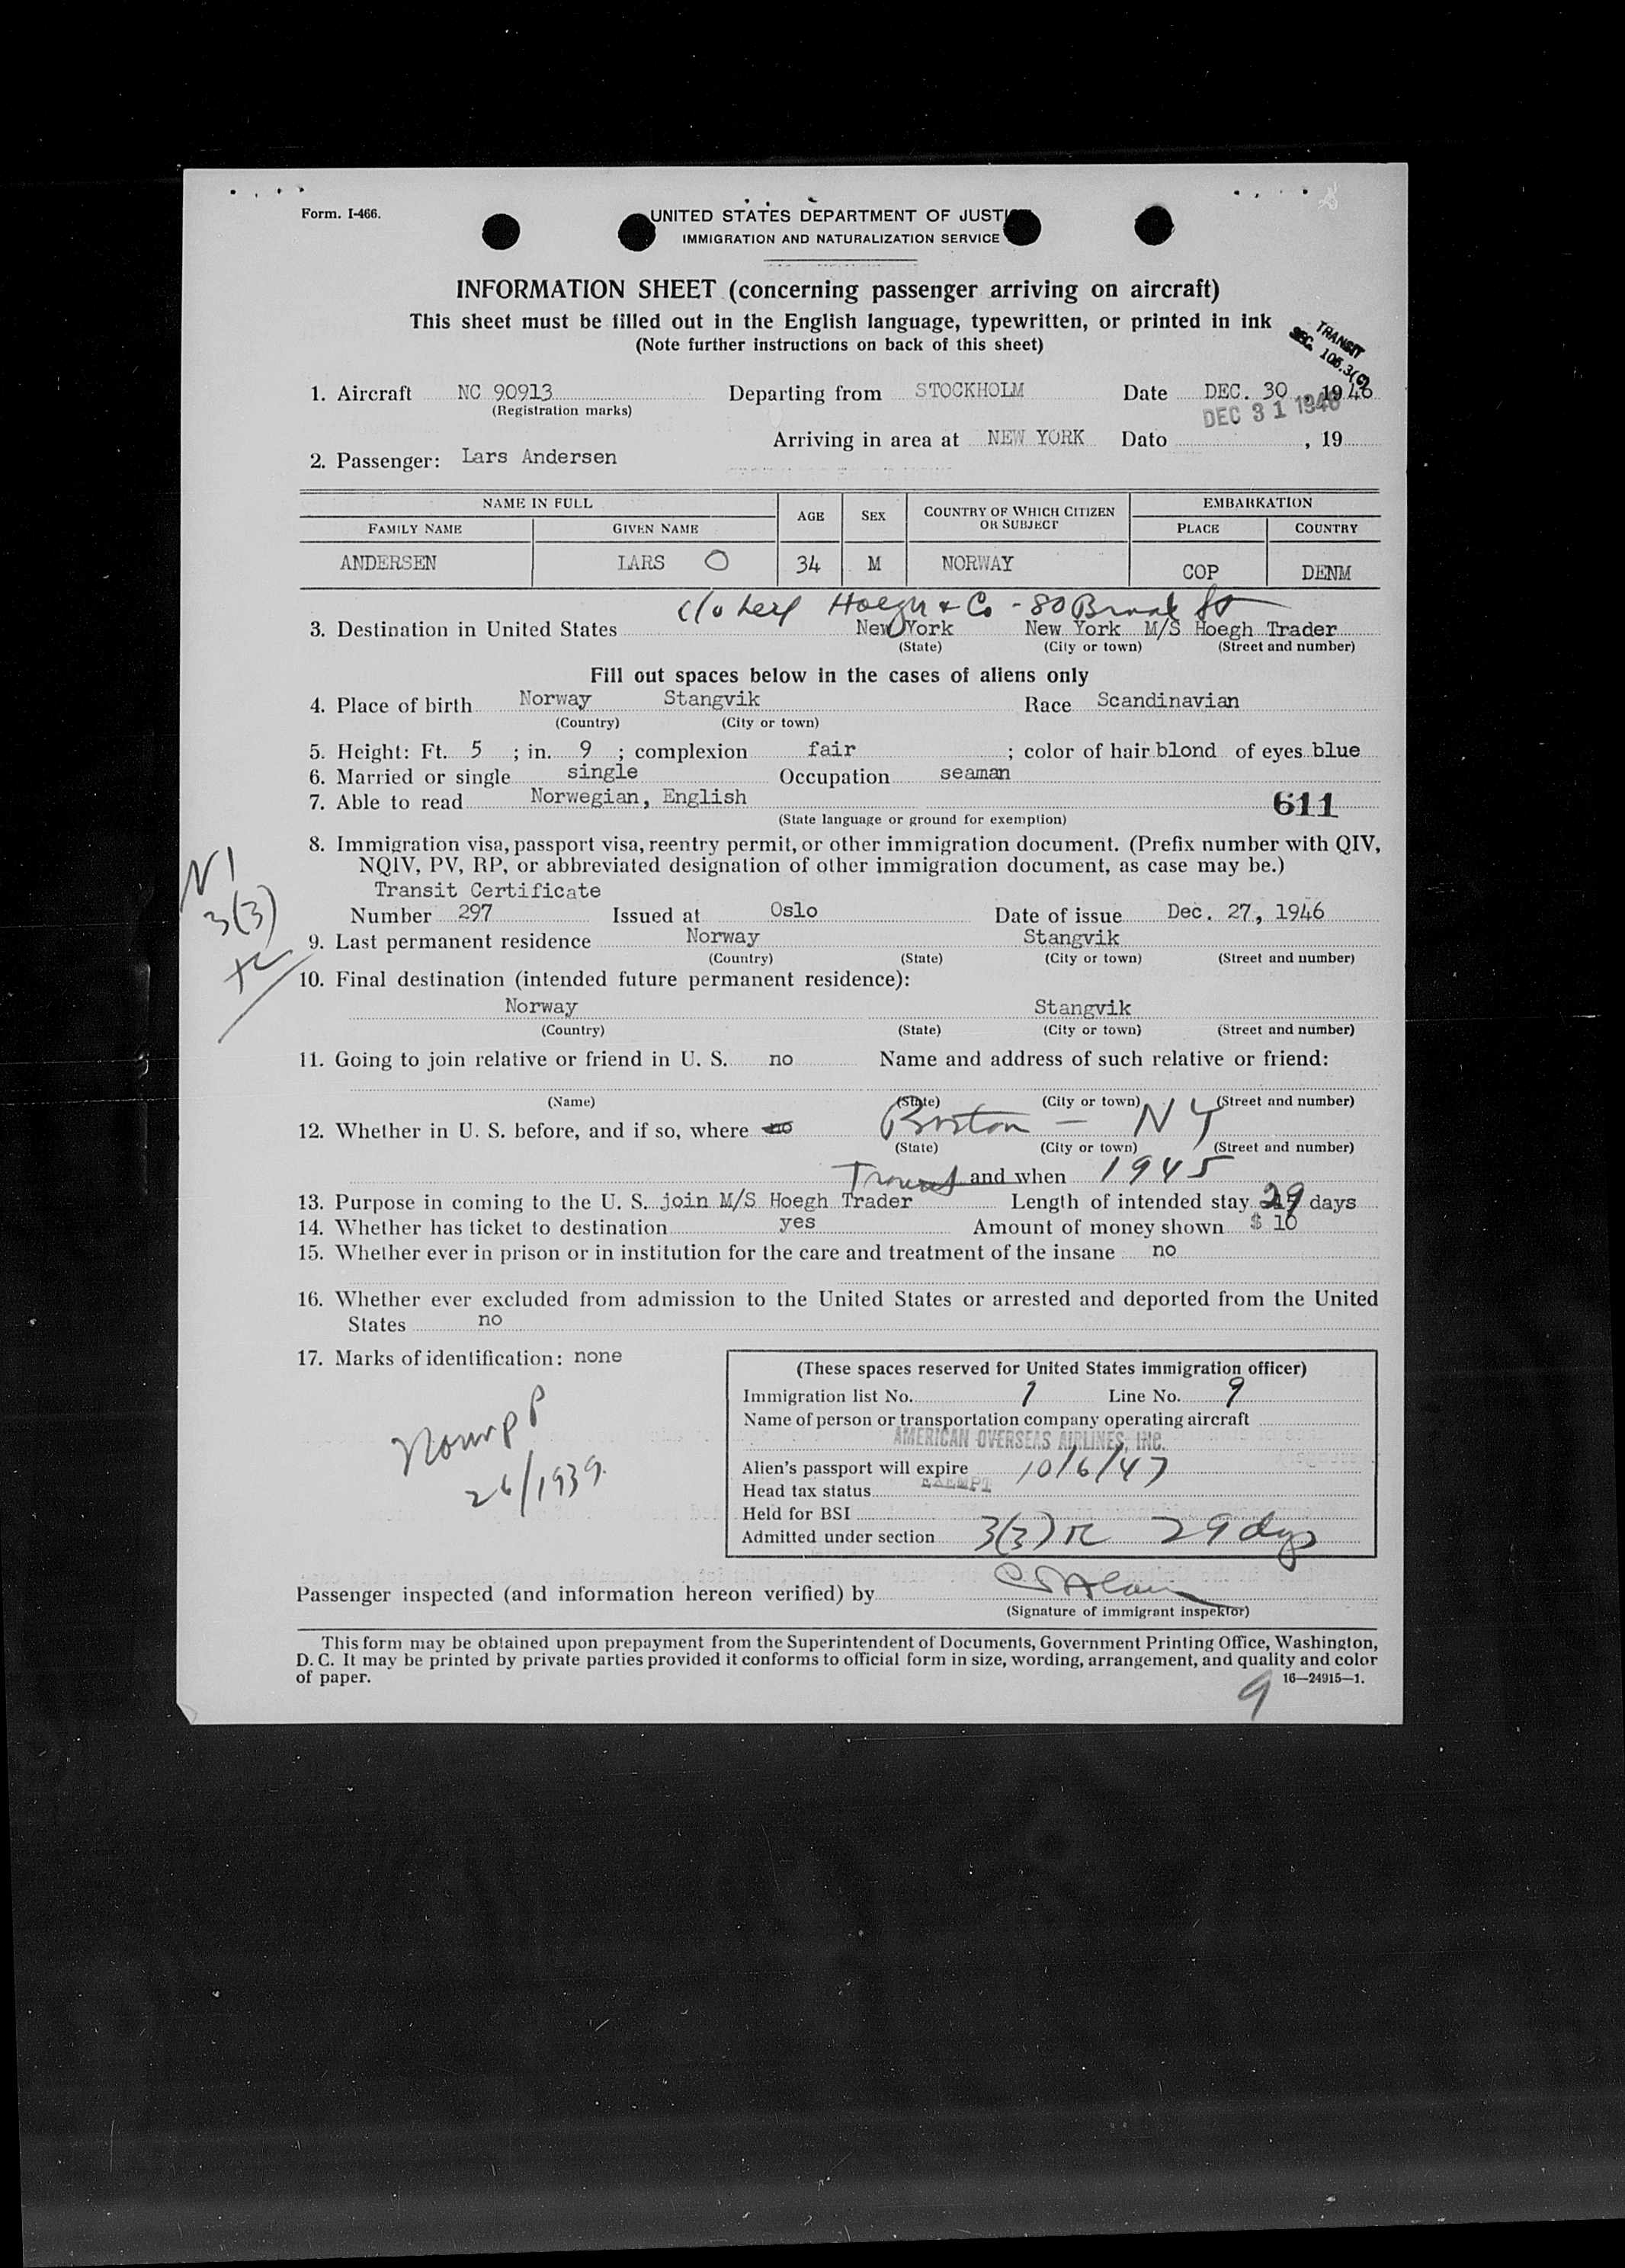 Form. I-466.
UNITED STATES DEPARTMENT OF JUSTI
IMMIGRATION AND NATURALIZATION SERVICE
INFORMATION SHEET (concerning passenger arriving on aircraft)
This sheet must be filled out in the English language, typewritten, or printed in ink
(Note further instructions on back of this sheet)
TRANSIT
SEC. 105.3(c)
1. Aircraft NC 90913 Departing from STOCKHOLM Date DEC. 30, 1946
(Registration marks)
DEC 31 1946
Arriving in area at NEW YORK Date , 19
2. Passenger: Lars Andersen
NAME IN FULL AGE SEX COUNTRY OF WHICH CITIZEN OR SUBJECT EMBARKATION
FAMILY NAME GIVEN NAME PLACE COUNTRY
ANDERSEN LARS O 34 M NORWAY COP DENM
c/o Leif Hoegh & Co - 80 Broad St
3. Destination in United States New York New York M/S Hoegh Trader
(State) (City or town) (Street and number)
Fill out spaces below in the cases of aliens only
4. Place of birth Norway Stangvik Race Scandinavian
(Country) (City or town)
5. Height: Ft. 5 ; in. 9 ; complexion fair ; color of hair blond of eyes blue
6. Married or single single Occupation seaman
7. Able to read Norwegian, English 611
(State language or ground for exemption)
8. Immigration visa, passport visa, reentry permit, or other immigration document. (Prefix number with QIV,
NQIV, PV, RP, or abbreviated designation of other immigration document, as case may be.)
Transit Certificate
Number 297 Issued at Oslo Date of issue Dec. 27, 1946
3(3)
9. Last permanent residence Norway Stangvik
(Country) (State) (City or town) (Street and number)
10. Final destination (intended future permanent residence):
Norway Stangvik
(Country) (State) (City or town) (Street and number)
11. Going to join relative or friend in U. S. no Name and address of such relative or friend:
(Name) (State) (City or town) (Street and number)
12. Whether in U. S. before, and if so, where no Boston - NY
(State) (City or town) (Street and number)
Transit and when 1945
13. Purpose in coming to the U. S. join M/S Hoegh Trader Length of intended stay 29 days
14. Whether has ticket to destination yes Amount of money shown $ 10
15. Whether ever in prison or in institution for the care and treatment of the insane no
16. Whether ever excluded from admission to the United States or arrested and deported from the United
States no
17. Marks of identification: none
Norw PP
26/1939.
(These spaces reserved for United States immigration officer)
Immigration list No. 1 Line No. 9
Name of person or transportation company operating aircraft
AMERICAN OVERSEAS AIRLINES, INC.
Alien's passport will expire 10/6/47
Head tax status EXEMPT
Held for BSI
Admitted under section 3(3) 29 days
Passenger inspected (and information hereon verified) by
(Signature of immigrant inspektor)
This form may be obtained upon prepayment from the Superintendent of Documents, Government Printing Office, Washington,
D. C. It may be printed by private parties provided it conforms to official form in size, wording, arrangement, and quality and color
of paper. 16—24915—1.
9